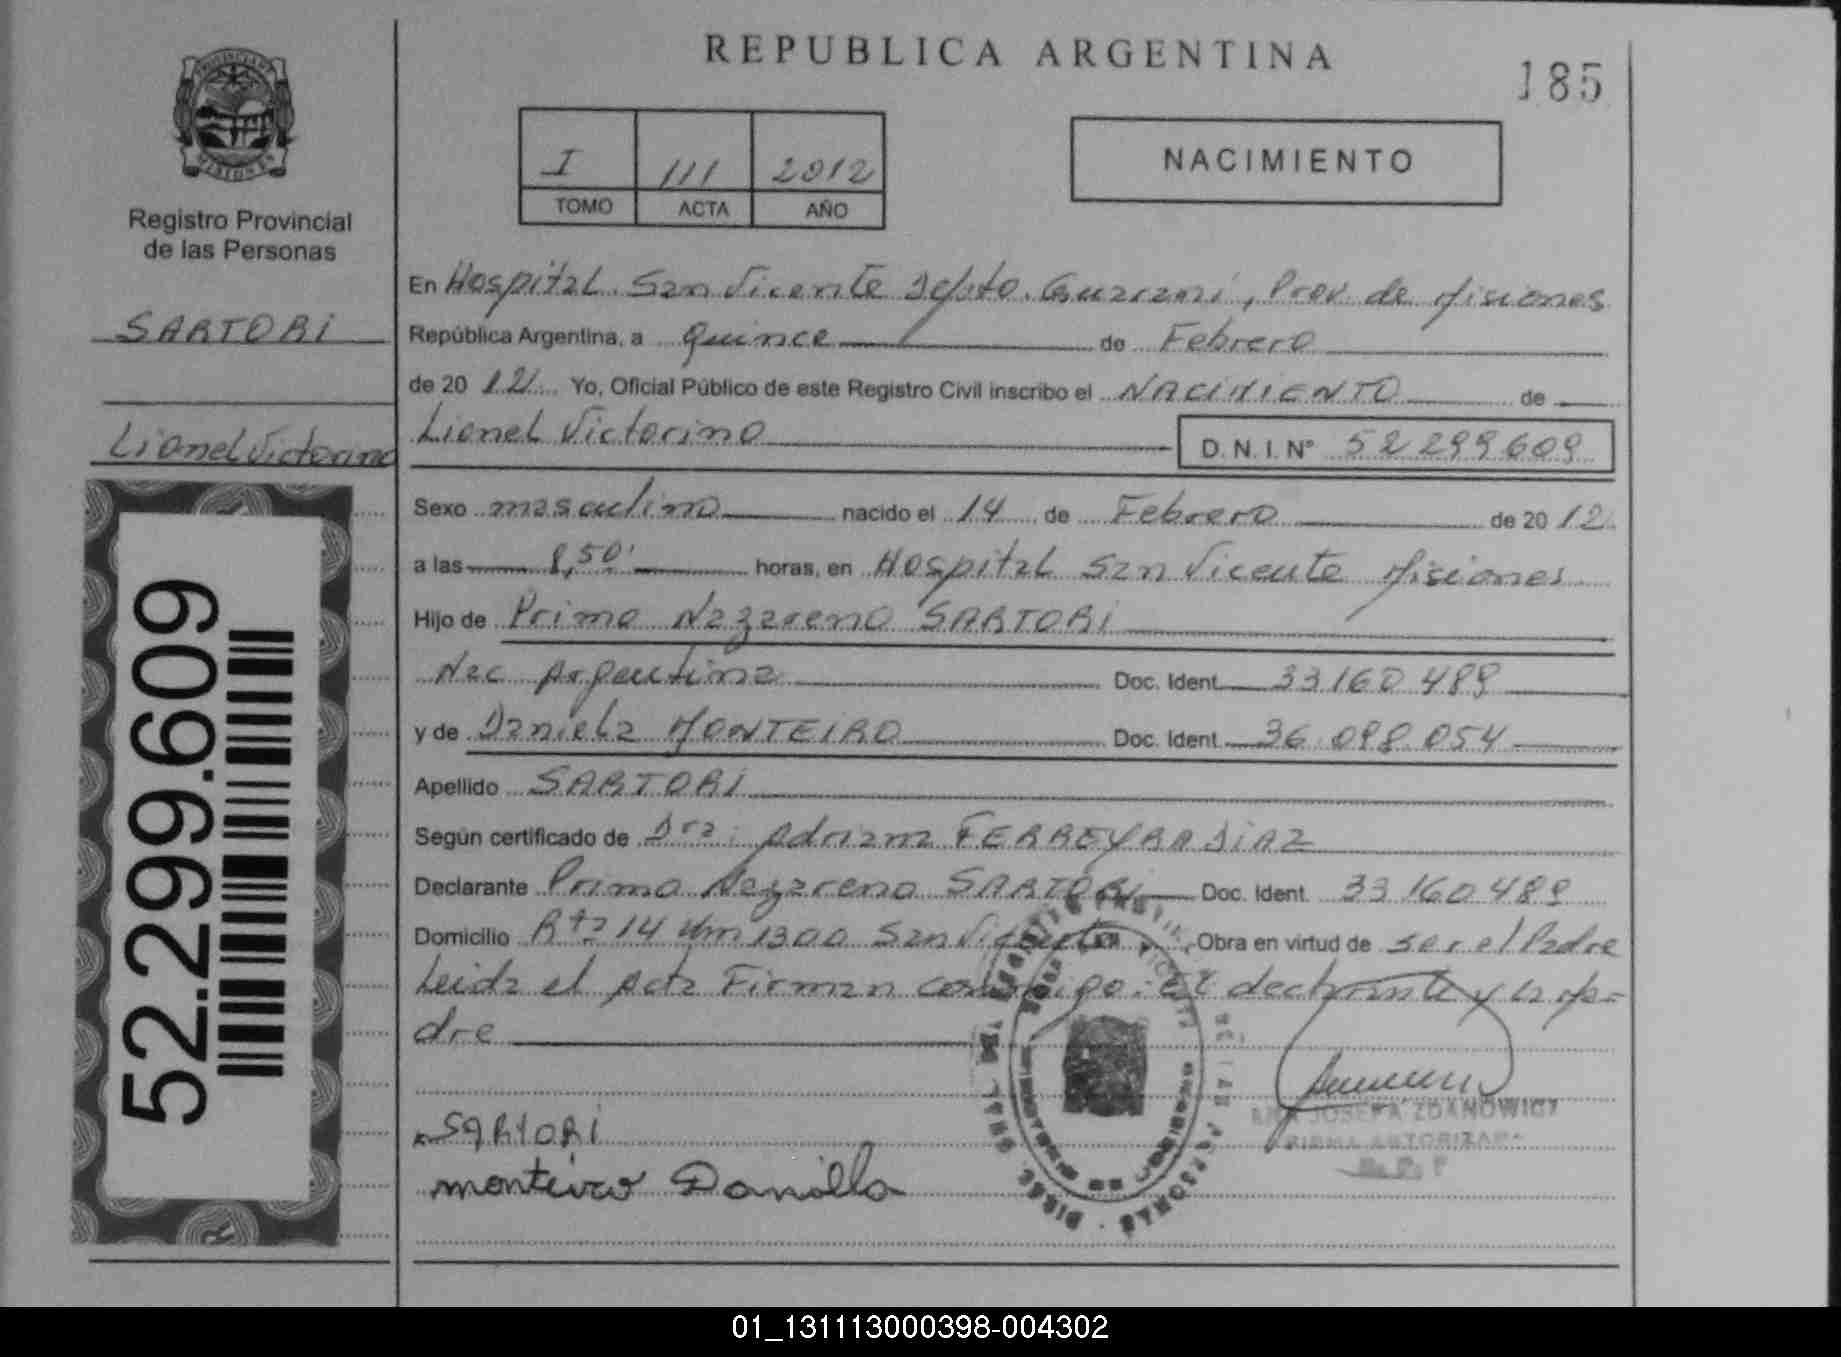 REPUBLICA ARGENTINA
185
PROVINCIA DE
MISIONES
Registro Provincial
de las Personas
SARTORI
Lionel Victorino
52.299.609
I 111 2012
TOMO ACTA AÑO
NACIMIENTO
En Hospital San Vicente Depto. Guaraní, Prov de Misiones
República Argentina, a quince de Febrero
de 20 12 Yo, Oficial Público de este Registro Civil inscribo el NACIMIENTO de
Lionel Victorino D.N.I. Nº 52 299 609
Sexo masculino nacido el 14 de Febrero de 20 12
a las 8,50' horas, en Hospital San Vicente Misiones
Hijo de Primo Nazareno SARTORI
Nac Argentina Doc. Ident. 33 160 489
y de Daniela MONTEIRO Doc. Ident. 36.098.054
Apellido SARTORI
Según certificado de Dra: Adriana FERREYRA DIAZ
Declarante Primo Nazareno SARTORI Doc. Ident. 33 160 489
Domicilio Rta 14 Km 1300 San Vicente Obra en virtud de ser el Padre
Leida el Acta Firman conmigo: el declarante y la Ma-
dre
SARTORI
monteiro Daniela
JOSEFA ZDANOWICZ
FIRMA AUTORIZADA
01_131113000398-004302